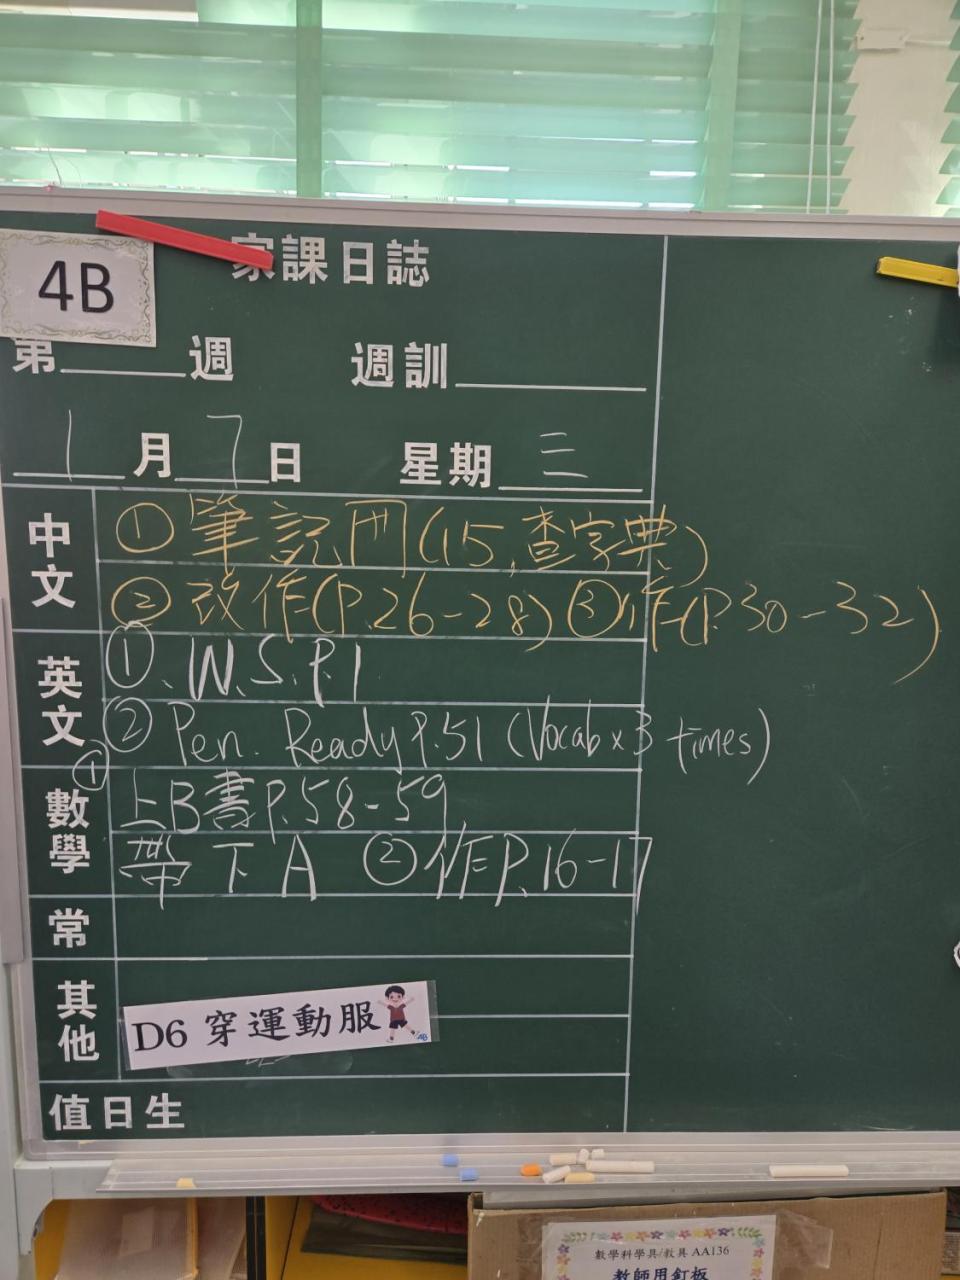 4B
家課日誌
第 週 週訓
1月7日 星期三
中文
①筆記冊(15,查字典)
②改作(P.26-28) ③作(P.30-32)
英文
①、W.S.P.1
② Pen. Ready P.51 (Vocab x 3 times)
數學
① 上B書P.58-59
帶下A ②作P.16-17
常
其他
D6 穿運動服
4B
值日生
數學科學具/教具 AA136
教師用釘板